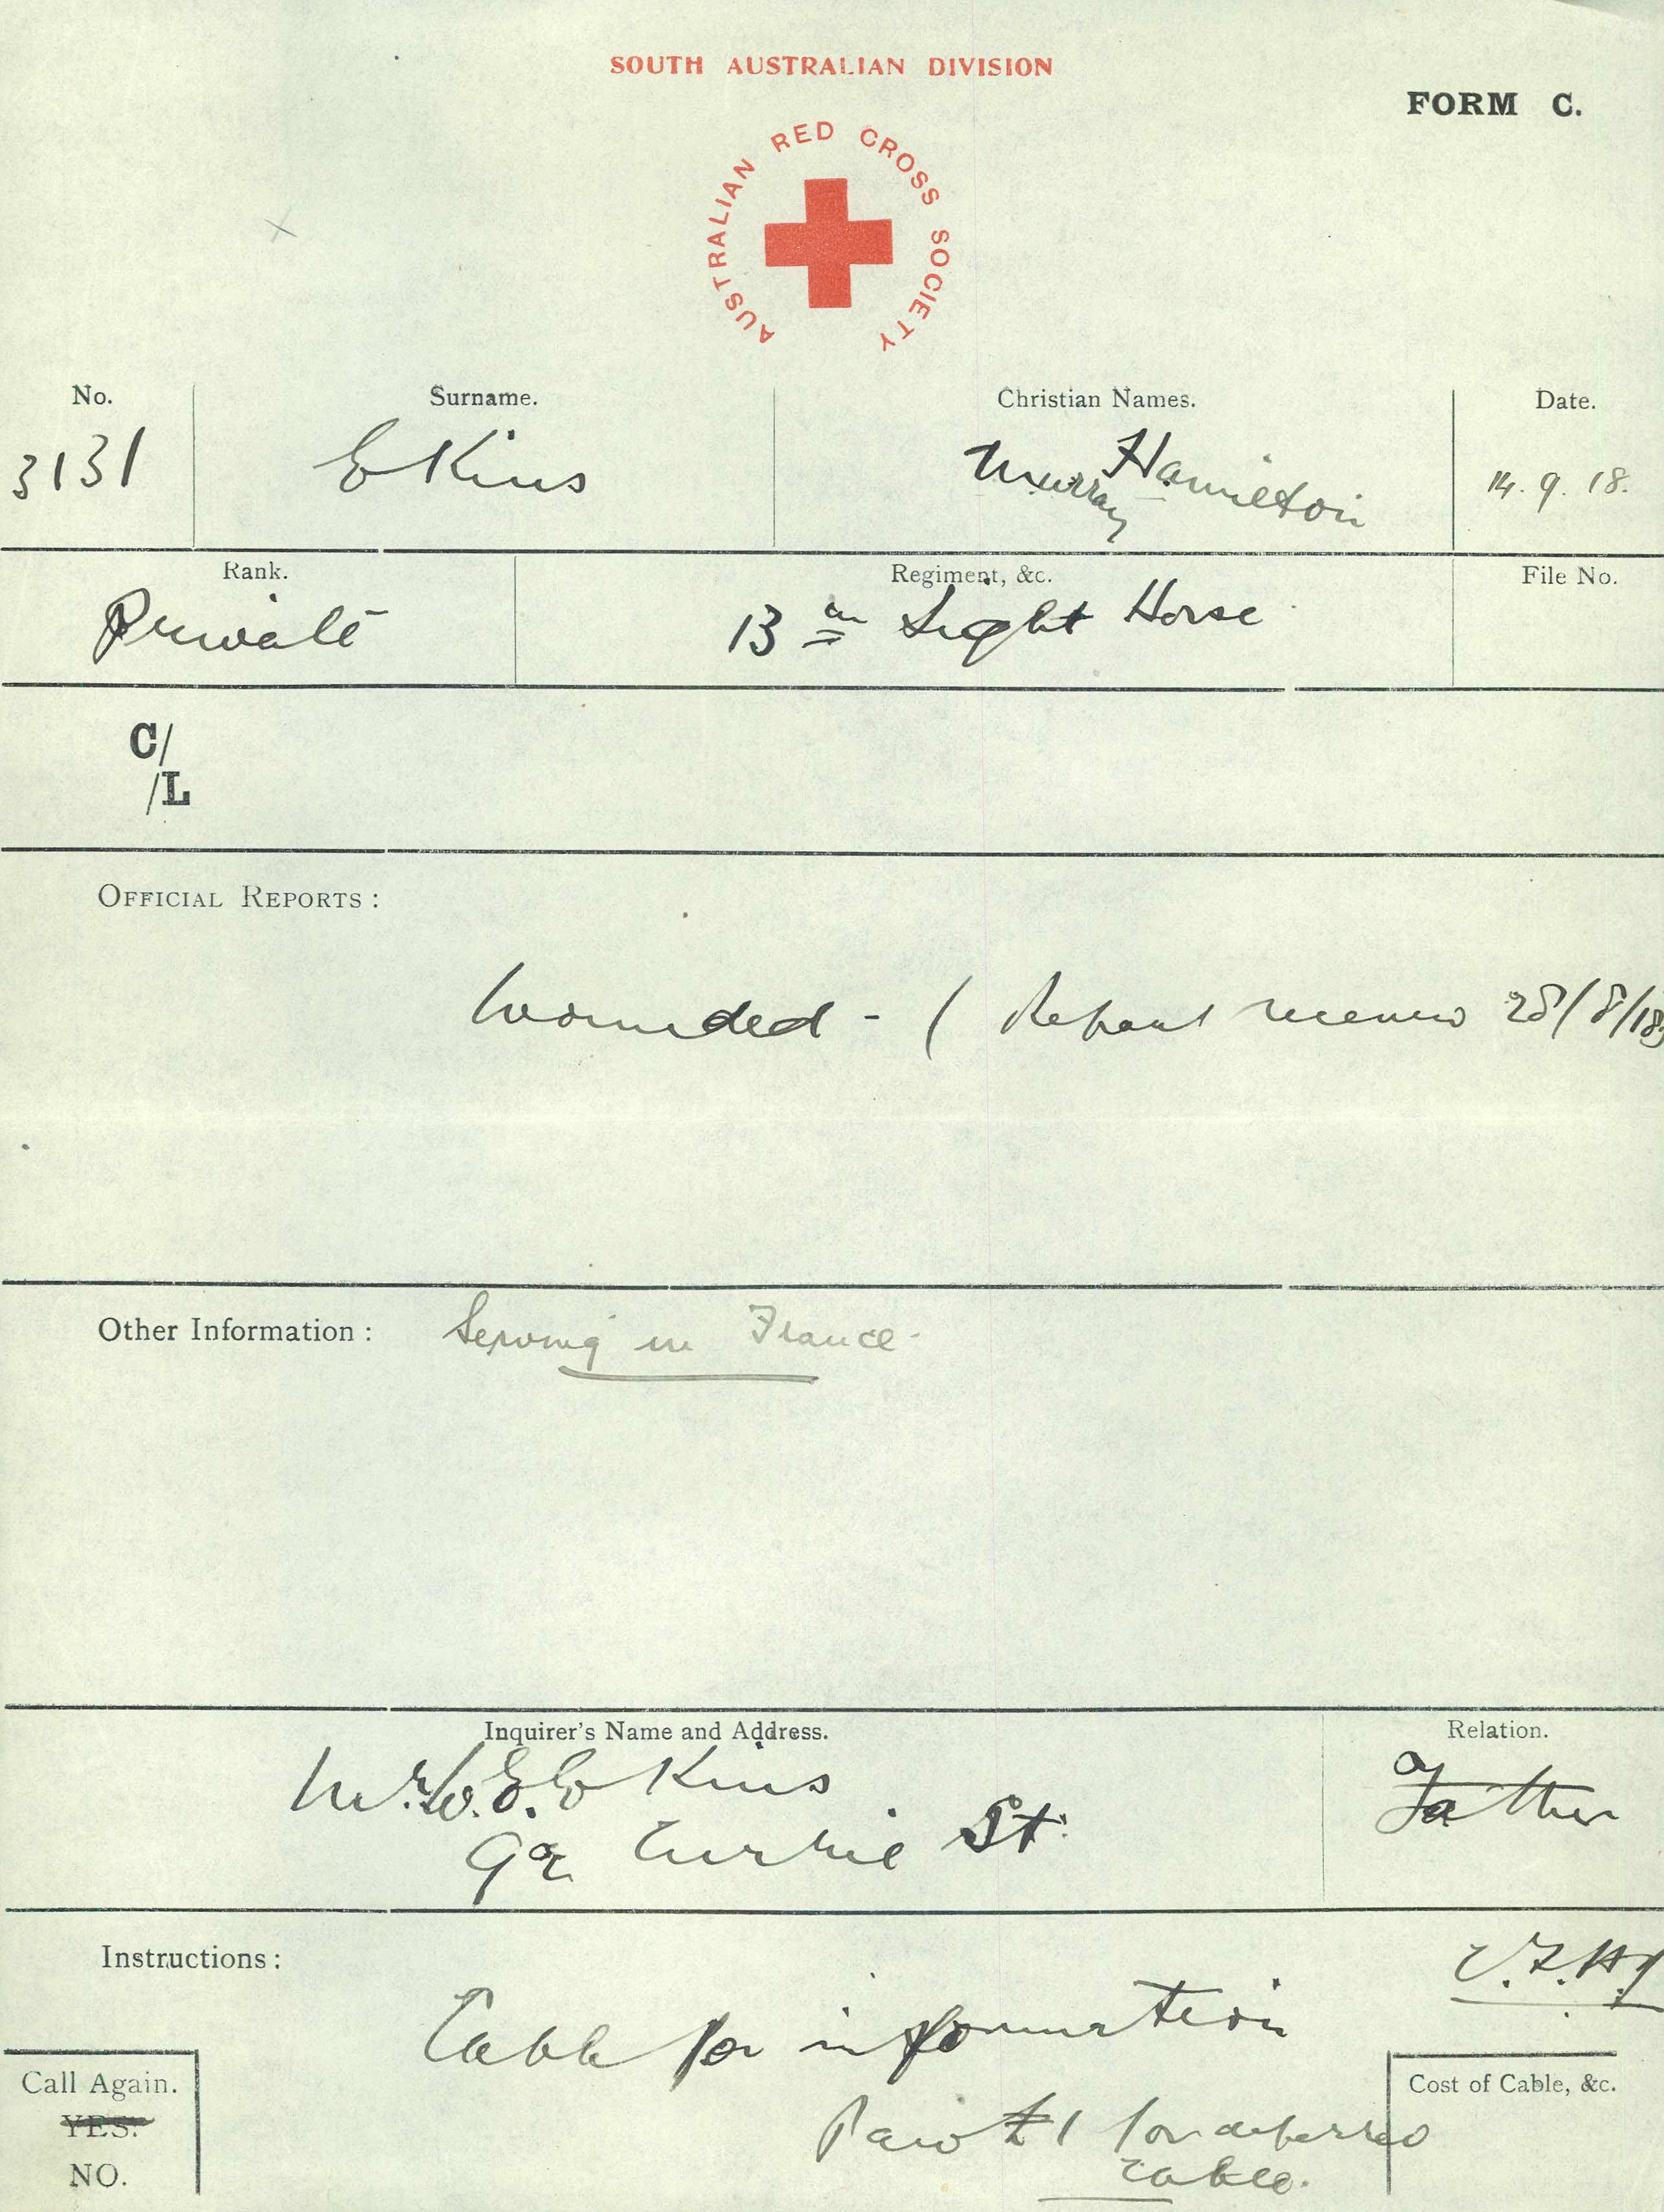 SOUTH AUSTRALIAN DIVISION
FORM C.
AUSTRALIAN RED CROSS SOCIETY
No. Surname. Christian Names. Date.
3131 Ekins Murray Hamilton 14.9.18.
Rank. Regiment, &c. File No.
Private 13th Light Horse
C/
/L
OFFICIAL REPORTS:
Wounded - ( Report received 28/8/18)
Other Information: Serving in France
Inquirer's Name and Address. Relation.
Mr. W. E. Ekins Father
Currie St.
Instructions:
Cable for information
Call Again. Cost of Cable, &c.
YES.
Paid £1 for deferred
NO. cable.